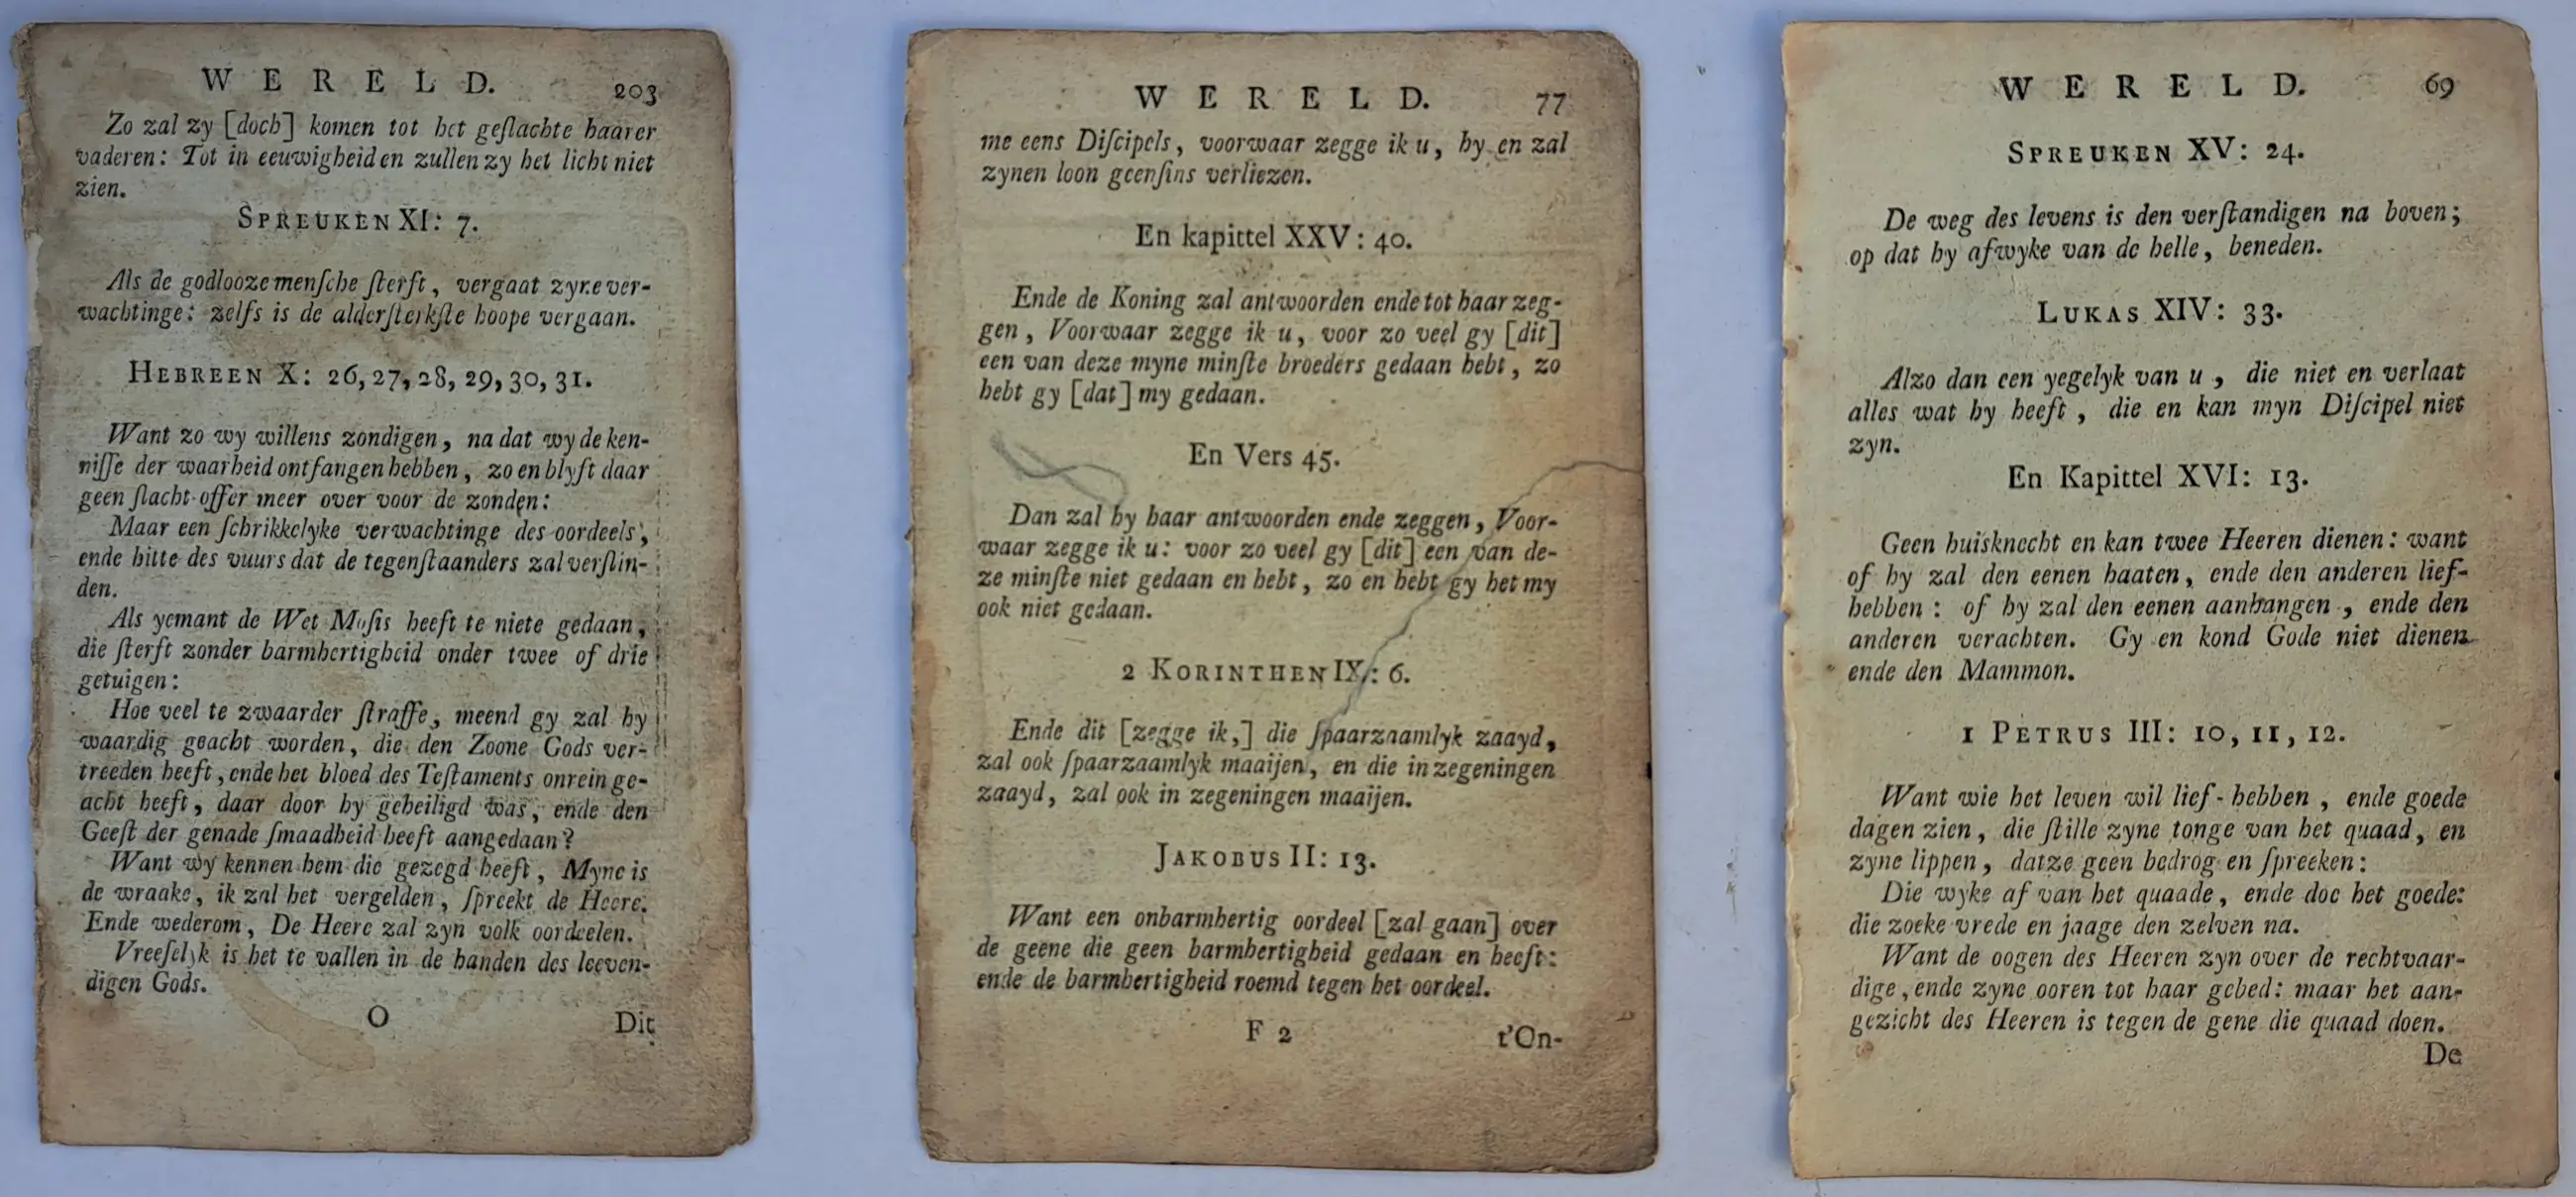 WERELD. 203
Zo zal zy [doch] komen tot het geſlachte haarer
vaderen: Tot in eeuwigheiden zullen zy het licht niet
zien.
SPREUKEN XI: 7.
Als de godlooze menſche ſterft, vergaat zyne ver-
wachtinge: zelfs is de alderſterkſte hoope vergaan.
HEBREEN X: 26, 27, 28, 29, 30, 31.
Want zo wy willens zondigen, na dat wy de ken-
niſſe der waarheid ontfangen hebben, zo en blyft daar
geen ſlacht-offer meer over voor de zonden:
Maar een ſchrikkelyke verwachtinge des oordeels,
ende hitte des vuurs dat de tegenſtaanders zal verſlin-
den.
Als yemant de Wet Moſis heeft te niete gedaan,
die ſterft zonder barmhertigheid onder twee of drie
getuigen:
Hoe veel te zwaarder ſtraffe, meend gy zal hy
waardig geacht worden, die den Zoone Gods ver-
treeden heeft, ende het bloed des Teſtaments onrein ge-
acht heeft, daar door hy geheiligd was, ende den
Geeſt der genade ſmaadheid heeft aangedaan?
Want wy kennen hem die gezegd heeft, Myne is
de wraake, ik zal het vergelden, ſpreekt de Heere.
Ende wederom, De Heere zal zyn volk oordeelen.
Vreeſelyk is het te vallen in de handen des leeven-
digen Gods.
O Dit
WERELD. 77
me eens Diſcipels, voorwaar zegge ik u, hy en zal
zynen loon geenſins verliezen.
En kapittel XXV: 40.
Ende de Koning zal antwoorden ende tot haar zeg-
gen, Voorwaar zegge ik u, voor zo veel gy [dit]
een van deze myne minſte broeders gedaan hebt, zo
hebt gy [dat] my gedaan.
En Vers 45.
Dan zal hy haar antwoorden ende zeggen, Voor-
waar zegge ik u: voor zo veel gy [dit] een van de-
ze minſte niet gedaan en hebt, zo en hebt gy het my
ook niet gedaan.
2 KORINTHEN IX: 6.
Ende dit [zegge ik,] die ſpaarzaamlyk zaayd,
zal ook ſpaarzaamlyk maaijen, en die in zegeningen
zaayd, zal ook in zegeningen maaijen.
JAKOBUS II: 13.
Want een onbarmhertig oordeel [zal gaan] over
de geene die geen barmhertigheid gedaan en heeft:
ende de barmhertigheid roemd tegen het oordeel.
F 2 t'On-
WERELD. 69
SPREUKEN XV: 24.
De weg des levens is den verſtandigen na boven;
op dat hy afwyke van de helle, beneden.
LUKAS XIV: 33.
Alzo dan een yegelyk van u, die niet en verlaat
alles wat hy heeft, die en kan myn Diſcipel niet
zyn.
En Kapittel XVI: 13.
Geen huisknecht en kan twee Heeren dienen: want
of hy zal den eenen haaten, ende den anderen lief-
hebben: of hy zal den eenen aanhangen, ende den
anderen verachten. Gy en kond Gode niet dienen
ende den Mammon.
1 PETRUS III: 10, 11, 12.
Want wie het leven wil lief-hebben, ende goede
dagen zien, die ſtille zyne tonge van het quaad, en
zyne lippen, datze geen bedrog en ſpreeken:
Die wyke af van het quaade, ende doe het goede:
die zoeke vrede en jaage den zelven na.
Want de oogen des Heeren zyn over de rechtvaar-
dige, ende zyne ooren tot haar gebed: maar het aan-
gezicht des Heeren is tegen de gene die quaad doen.
De